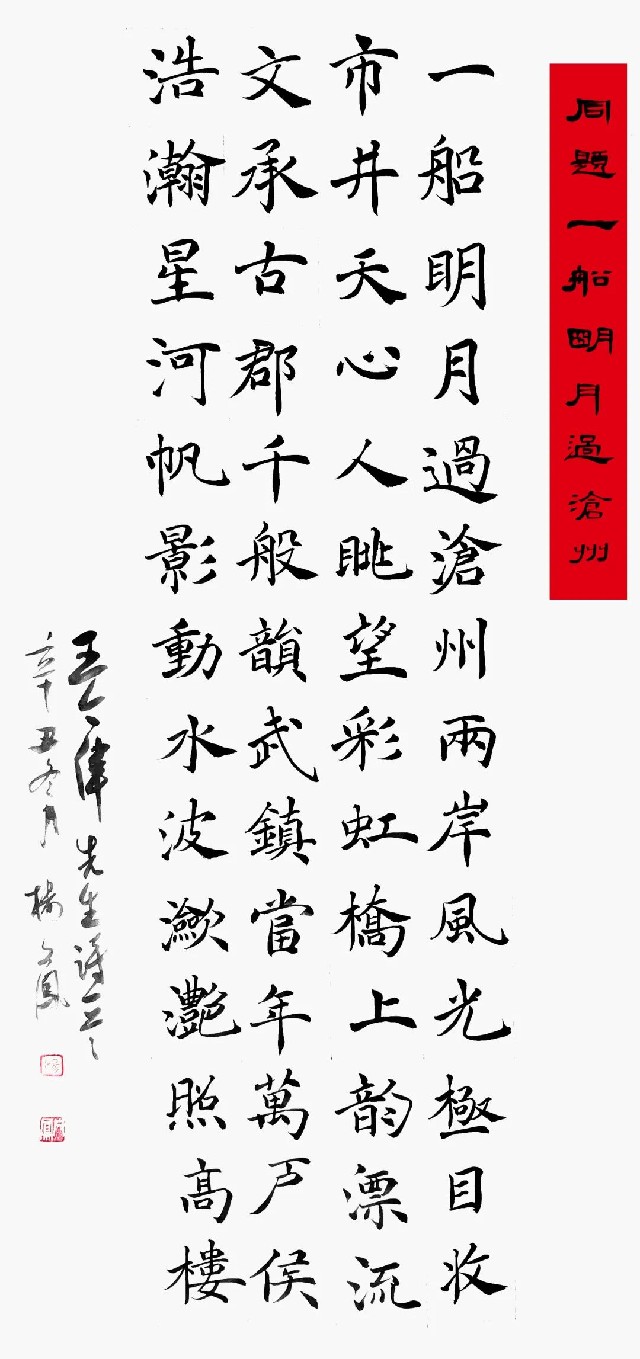 同题一船明月過滄州
一船明月過滄州兩岸風光極目收
市井天心人眺望彩虹橋上韵漂流
文承古郡千般韻武鎮當年萬戶侯
浩瀚星河帆影動水波瀲灧照高樓
先生詩一首
辛丑冬月楊文鳳